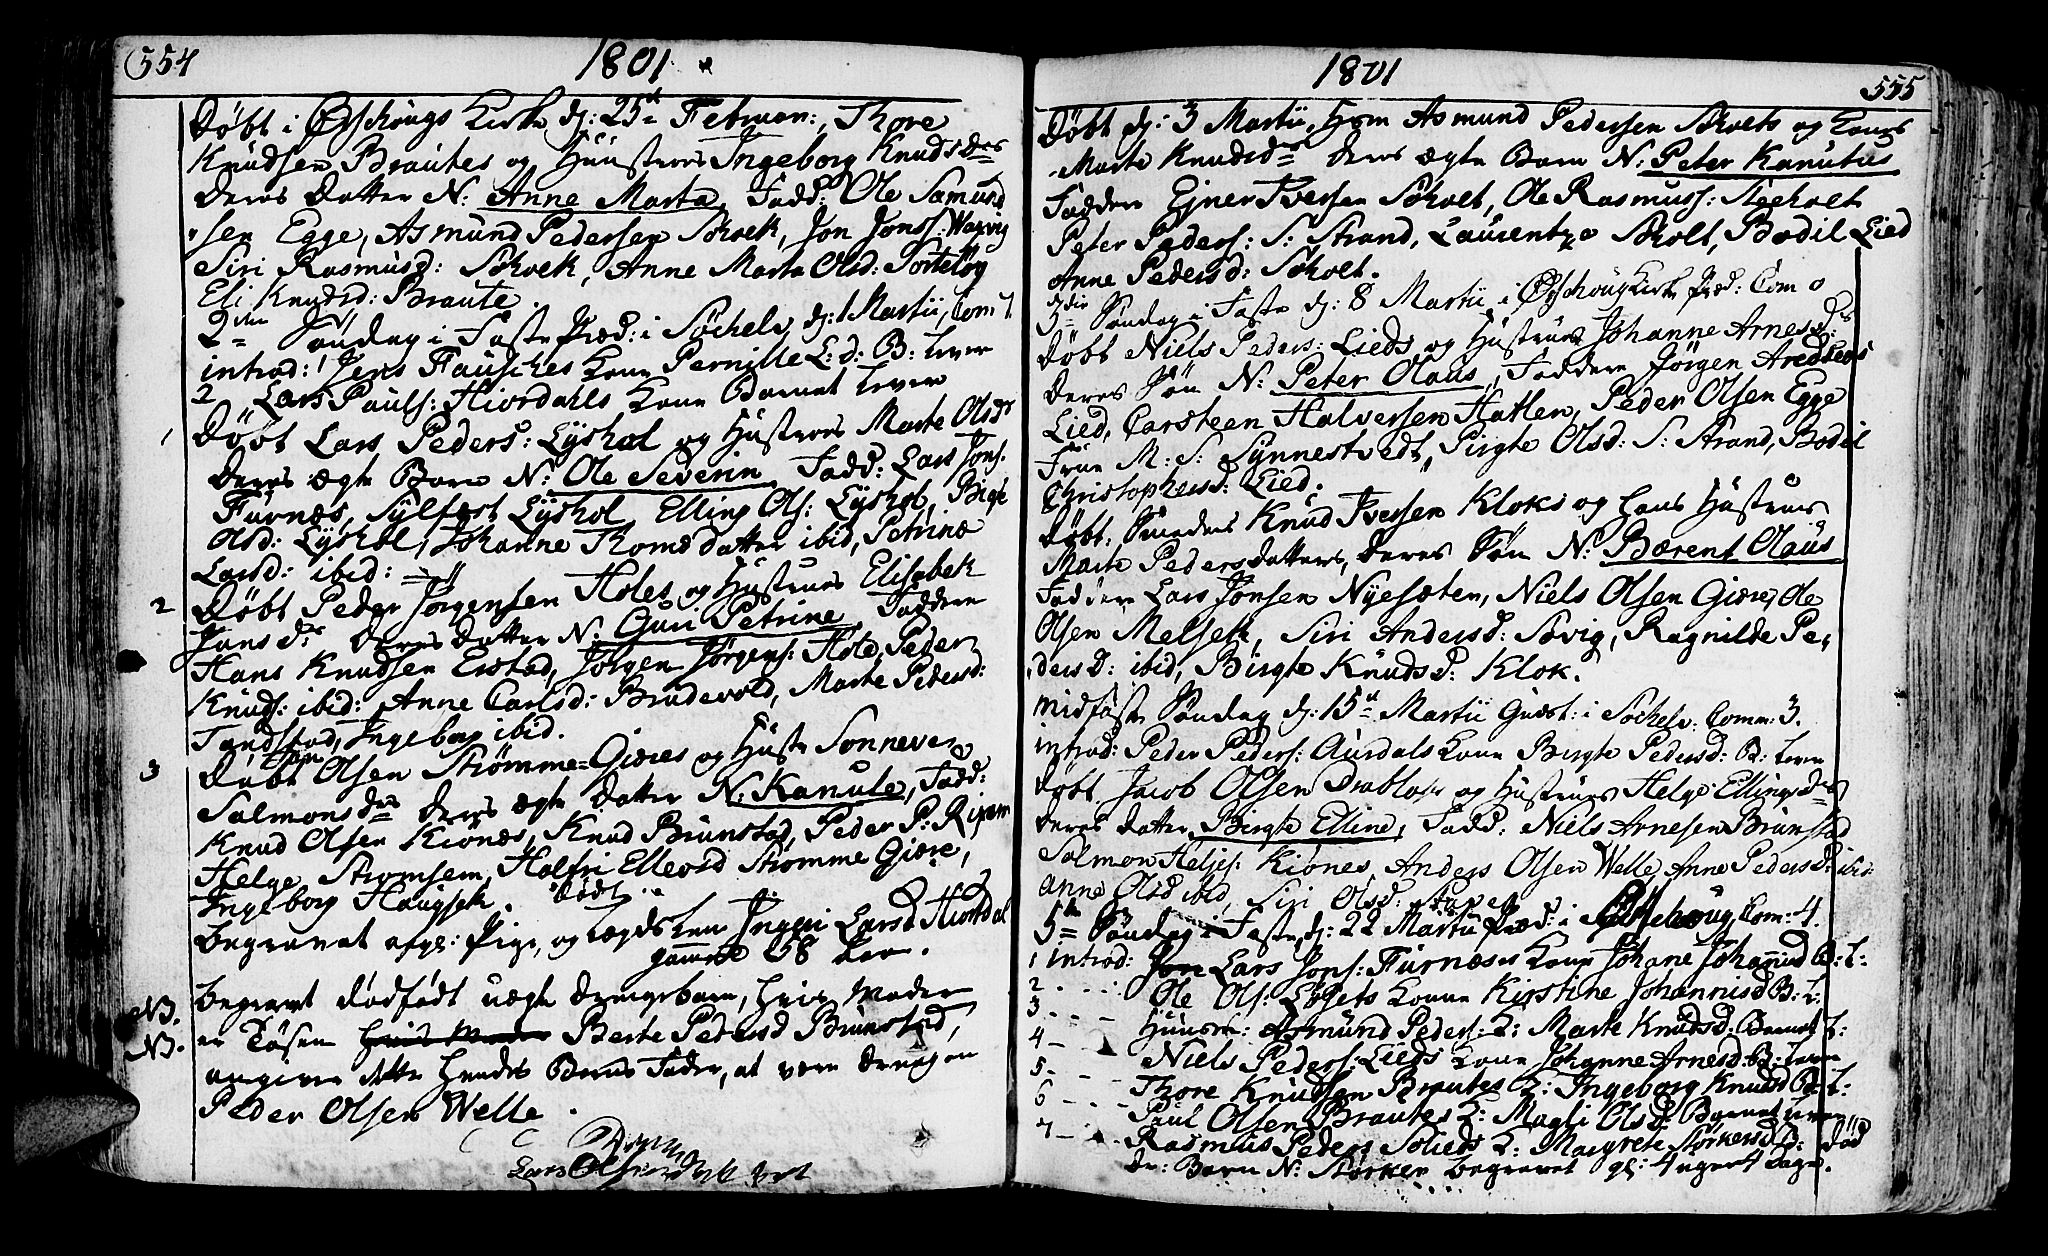 554
1801
Døbt i Ørschougs Kirke d: 25de Februar:, Thore
Knudsen Brautes og Huustroes Ingeborg Knudsdes
deres datter N: Anne Marta, Fadd: Ole Samund
sen Egge, Asmund Pedersen Søholt, Jon Jonss:
Siri Rasmusd: Søholt, Anne Marta Olsd:
Eli Knudsd: Braute.
2den Søndag i Faste Præd: i Søchelv, d: 1 Martii, Com
introd: Jens Fausches Kone Pernille L: d: B: lever
2 Lars Pauls: Hiordahls Kone Barnet lever
1 Døbt Lars Peders: Lyshol og Hustroes Marte Olsdr
deres ægte Barn N: Ole Severin Fadd: Lars Jons:
Furnæs, Sylfest Lyshol, Elling Ols: Lyshol, Birgte
Olsd: Lyshol, Johanne Thomedatter ibid, Petrinæ
Larsd: ibid:
2 Døbt Peder Jørgensen Holes og Hustrues Elisabet
Jansdr deres datter N: Guri Petrine Faddere
Hans Knudsen Erstad, Jørgen Jørgens: Hole, Peder
Knuds: ibid: Anne Carlsd: Brudevold, Marte Pedersd:
Tandstad, Ingeborg ibid.
3 Døbt Olsen Strømme=Giæres og Hustr Sonneve
Salmonsdes deres ægte datter N: Kanute, Fadd:
Knud Olsen Kiønæs, Knud Brunstad, Peder P:
Helge Stromsem, Halfri Ellevsd Strømme Giære,
Ingeborg Haugset.
Døde
begravet afgl: Pige, og Lægdslem Ingeri Larsd Hiordal
gammel 58 Aar.
NB. begravet dødfødt uægte drengebarn, hvis Moder
NB. er Tøsen hvis Moder Berte Pedersd Brunstad,
angiver dette hendes Barns Fader, at være drengen
Peder Olsen Welle.
Lars Olsen
555
1801
Døbt d: 3 Martii, Asmund Pedersen Søholts og Kones
Marte Knudsdr deres ægte Barn N: Peter Kanutus
Faddere Ejner Iversen Søholt, Ole Rasmuss: Steeholt
Peter Peders: S: Strand, Laurentze Søholt, Bodil Lied
Anne Pedersd: Søholt.
3die Søndag i Faste d: 8 Martii i Ørschoug Kirke Præd: Com 0
Døbt Niels Peders: Lieds og Hustrues Johanne Arnesdr
deres Søn N: Peter Olaus, Faddere Jørgen
Lied, Carsteen Halversen Hatlen, Peder Olsen Egge
Frue M: S: Synnestvedt, Pirgte Olsd: S: Strand, Bodil
Christophersd: Lied.
Døbt: Knud Iversen Kloks og Hans Hustrues
Marte Pedersdatters, deres Søn N: Bærent Olaus
Faddere Lars Jonsen Nyesæten, Niels Olsen Giære, Ole
Olsen Melseth, Siri Andersd: Søvig, Ragnilde Pe-
dersd: ibid, Birgte Knudsd: Klok.
Midfaste Søndag d: 15de Martii Gudst: i Søchelv. Comm: 3.
introd: Peder Peders: Aurdals Kone Birgte Pedersd: B: lever
Døbt Jacob Olsen Drabløs og Hustrues Helge Ellingsdr
deres datter Birgte Elline, Fadd: Niels Arnesen Brunstad
Salmon Heljes: Kiønes, Anders Olsen Welle, Anne Pedersd: ibid:
Anne Olsd ibid, Siri Olsd:
5te Søndag i Faste, d: 22 Martii Præd: i Ørschoug Com: 4.
1 introd: Jon Lars Jons: Furnæses Kone Johane Johannisd B: L:
2 Ole Ols: Løsets Kone Kirstine Johannisd B: L:
3 Huusm: Asmund Peders: K: Marte Knudsd: Barnet L:
4 Niels Peders: Lieds Kone Johanne Arnesd: B: lever
5 Thore Knudsen Brautes K: Ingeborg Knudsd B: L:
6 Paul Olsen Brautes K: Magli Olsd: Barnet lever
7 Rasmus Peders Solieds K: Margrete Størkersd B: død
dr: Barn N: Størker begravet gl: 4 uger 4 Dage.